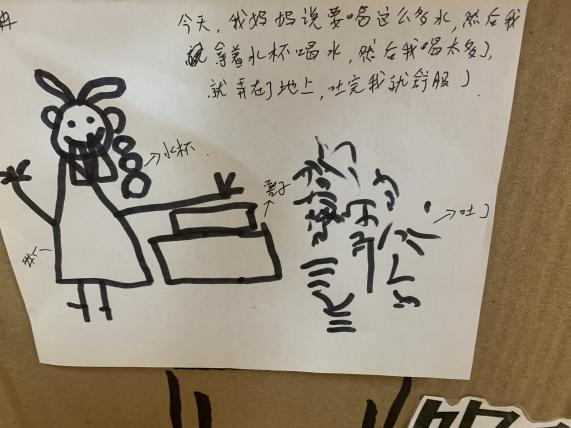 今天,我妈妈说要喝这么多水,然后我
就拿着水杯喝水,然后我喝太多了,
就弄在了地上,吐完我就舒服了.
→水杯
我←
→吐了